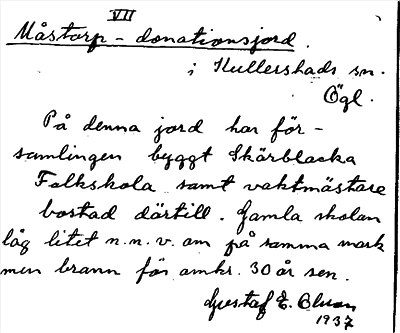 VII
Måstorp - donationsjord.
i Kullerstads sn.
Ögl.
På denna jord har för-
samlingen byggt Skärblacka
Folkskola samt vaktmästare
bostad därtill. Gamla skolan
låg litet n.n.v. om på samma mark
men brann för omkr. 30 år sen.
Gustaf E.
1937